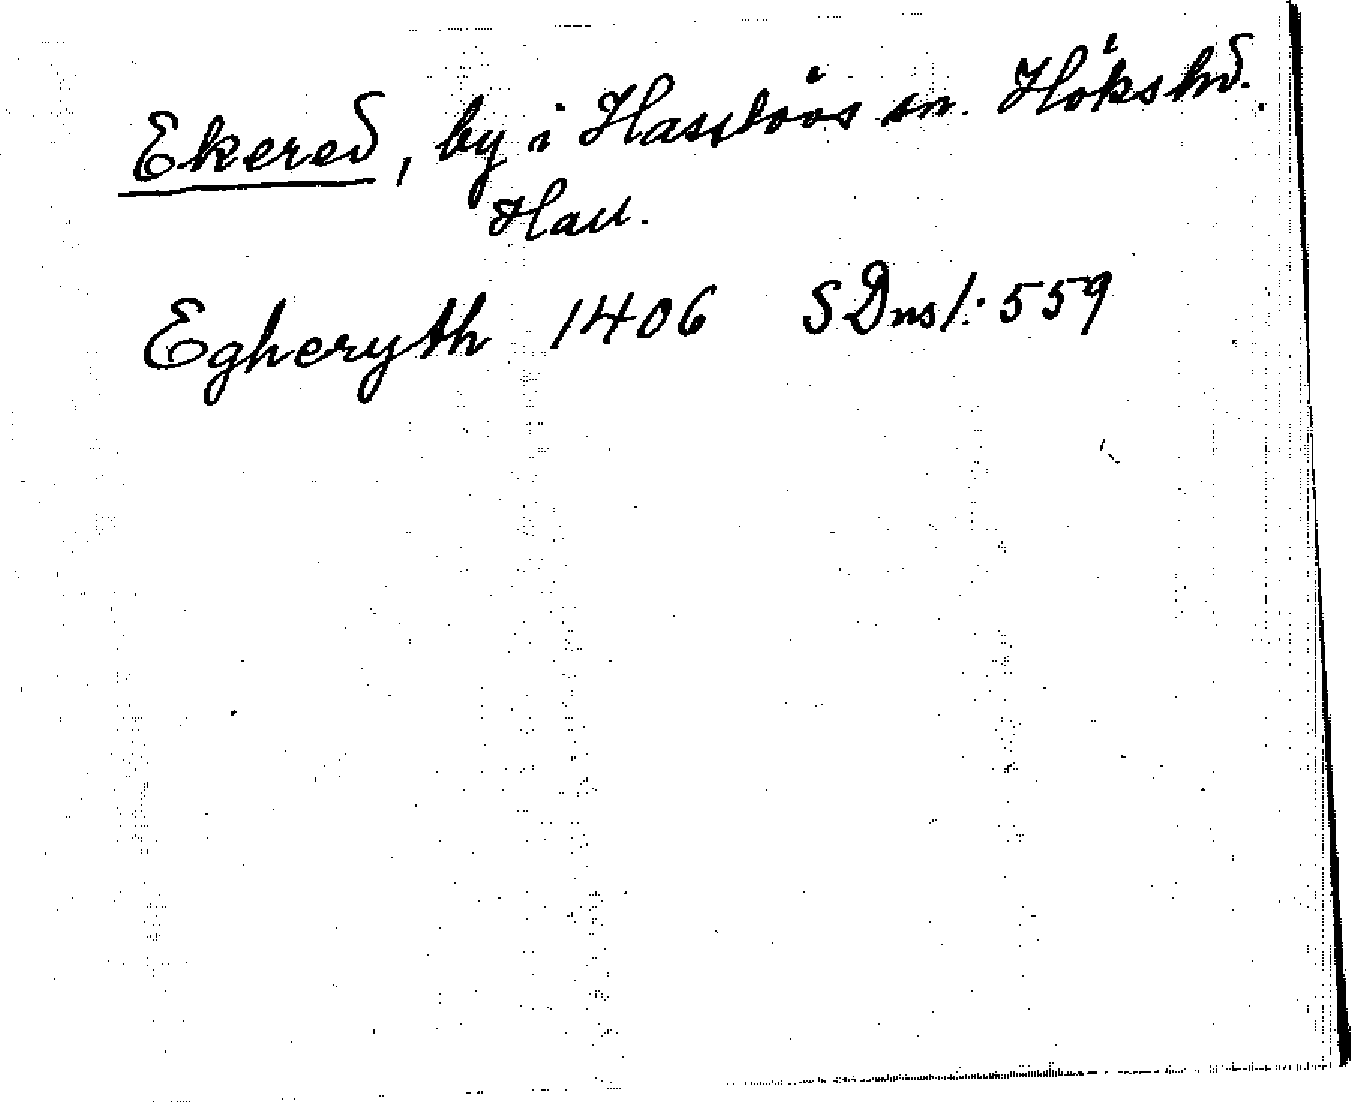 Ekered, by i Hasslövs sn. Höks hd.
Hall.
Egheryth 1406 SDns 1:559